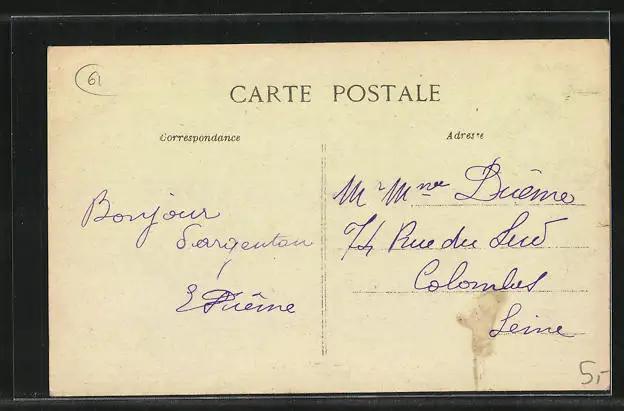 61
CARTE POSTALE
Correspondance
Adresse
Bonjour
d'argentan
E Duême
Mr Mme Duême
74 Rue du Sud
Colombes
Seine
5,-